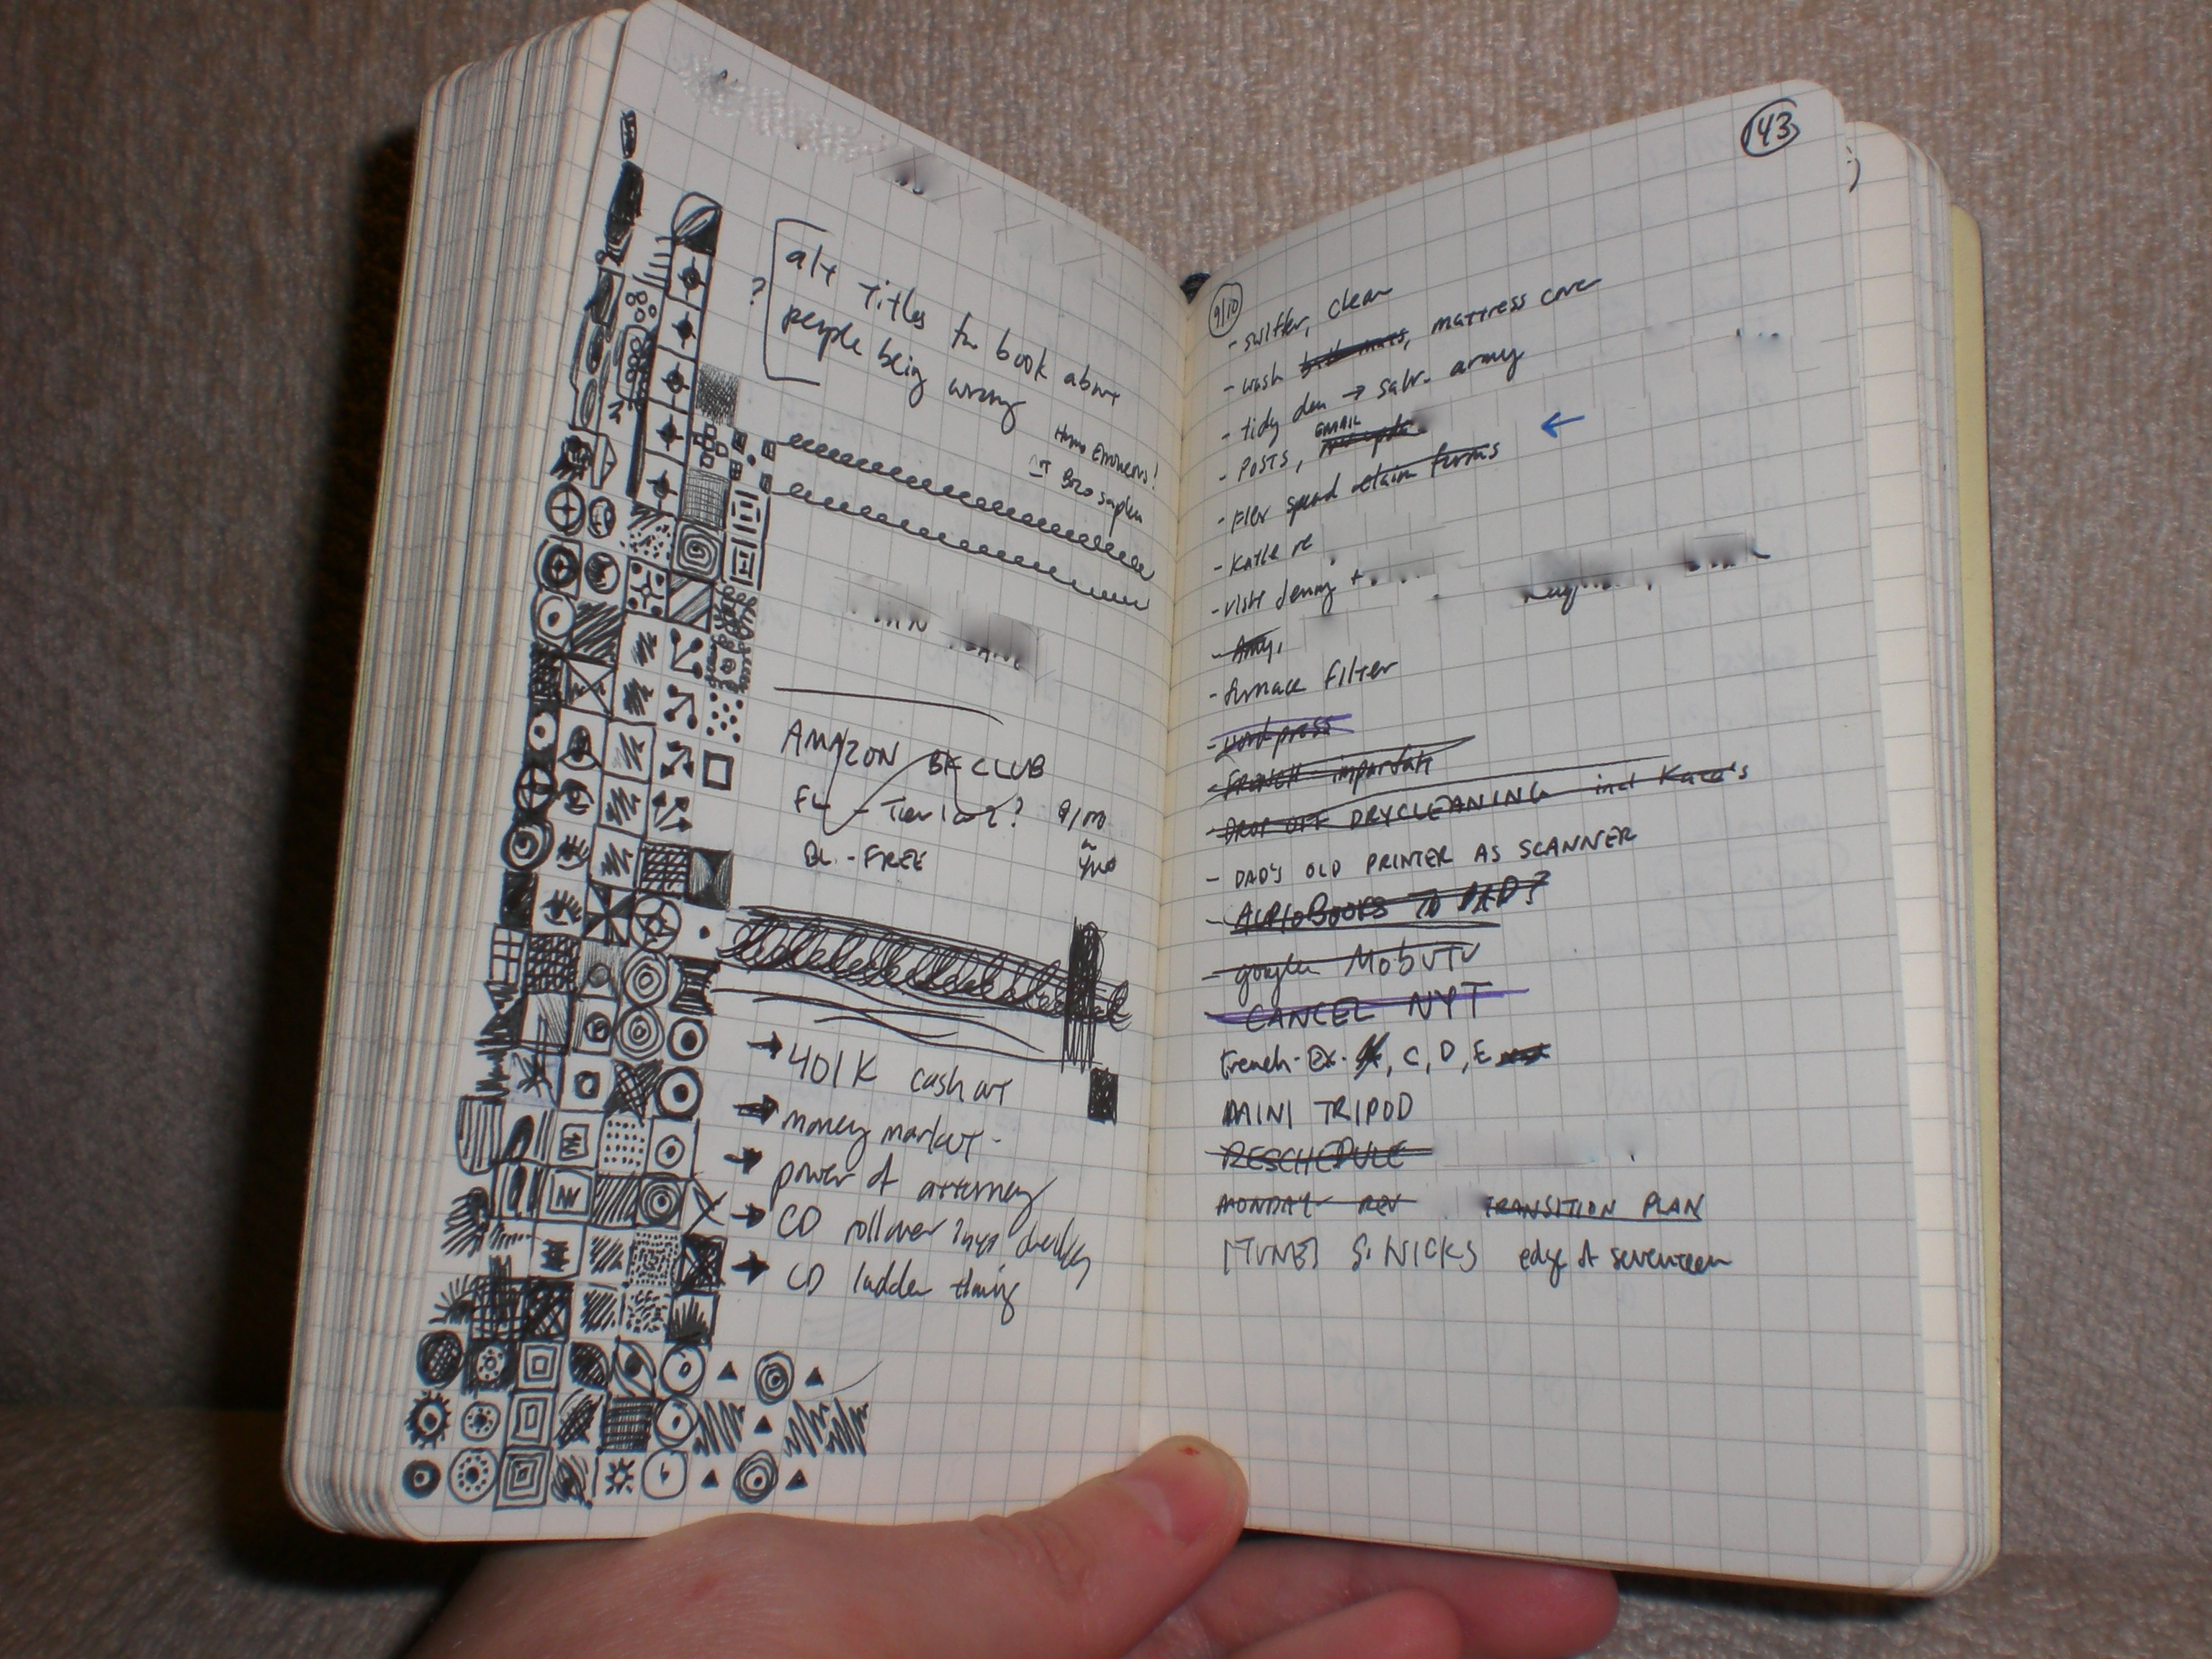 alt titles for book about
people being wrong
?
Homo Erroneous!
Bozo Sapien
AMAZON BK CLUB
FL - Tier 1 or 2? 9/mo
BL. - FREE
→ 401K cash or
→ money market -
→ power of attorney
→ CD rollover
→ CD ladder timing
143
9/10
- swiffer, clean
- wash bath mats, mattress cover
- tidy den → salv. army
- POSTS, GMAIL
- Flex spend claim forms
←
- Katie re
- visit Jenny +
- Amy,
- furnace filter
- wordpress
- FRENCH - imparfait
- DROP OFF DRYCLEANING incl Kara's
- DAD'S OLD PRINTER AS SCANNER
- AUDIOBOOKS TO DAD?
- google MobuTV
- CANCEL NYT
French - Ex. C, D, E
MINI TRIPOD
RESCHEDULE
MONDAY - REV TRANSITION PLAN
[TUNE] S. NICKS edge of seventeen